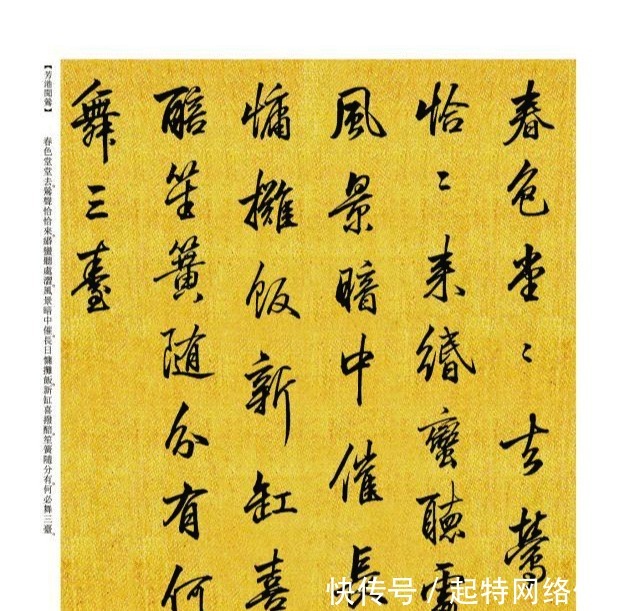 春色堂〻去鶯
恰〻來緡蠻聽處
風景暗中催長
慵攤飯新缸喜
醅笙簧隨分有何
舞三臺
【芳港聞鶯】 春色堂堂去。鶯聲恰恰來。緡蠻聽處溜。風景暗中催。長日慵攤飯。新缸喜撥醅。笙簧隨分有。何必舞三臺。
快传号 / 起特网络